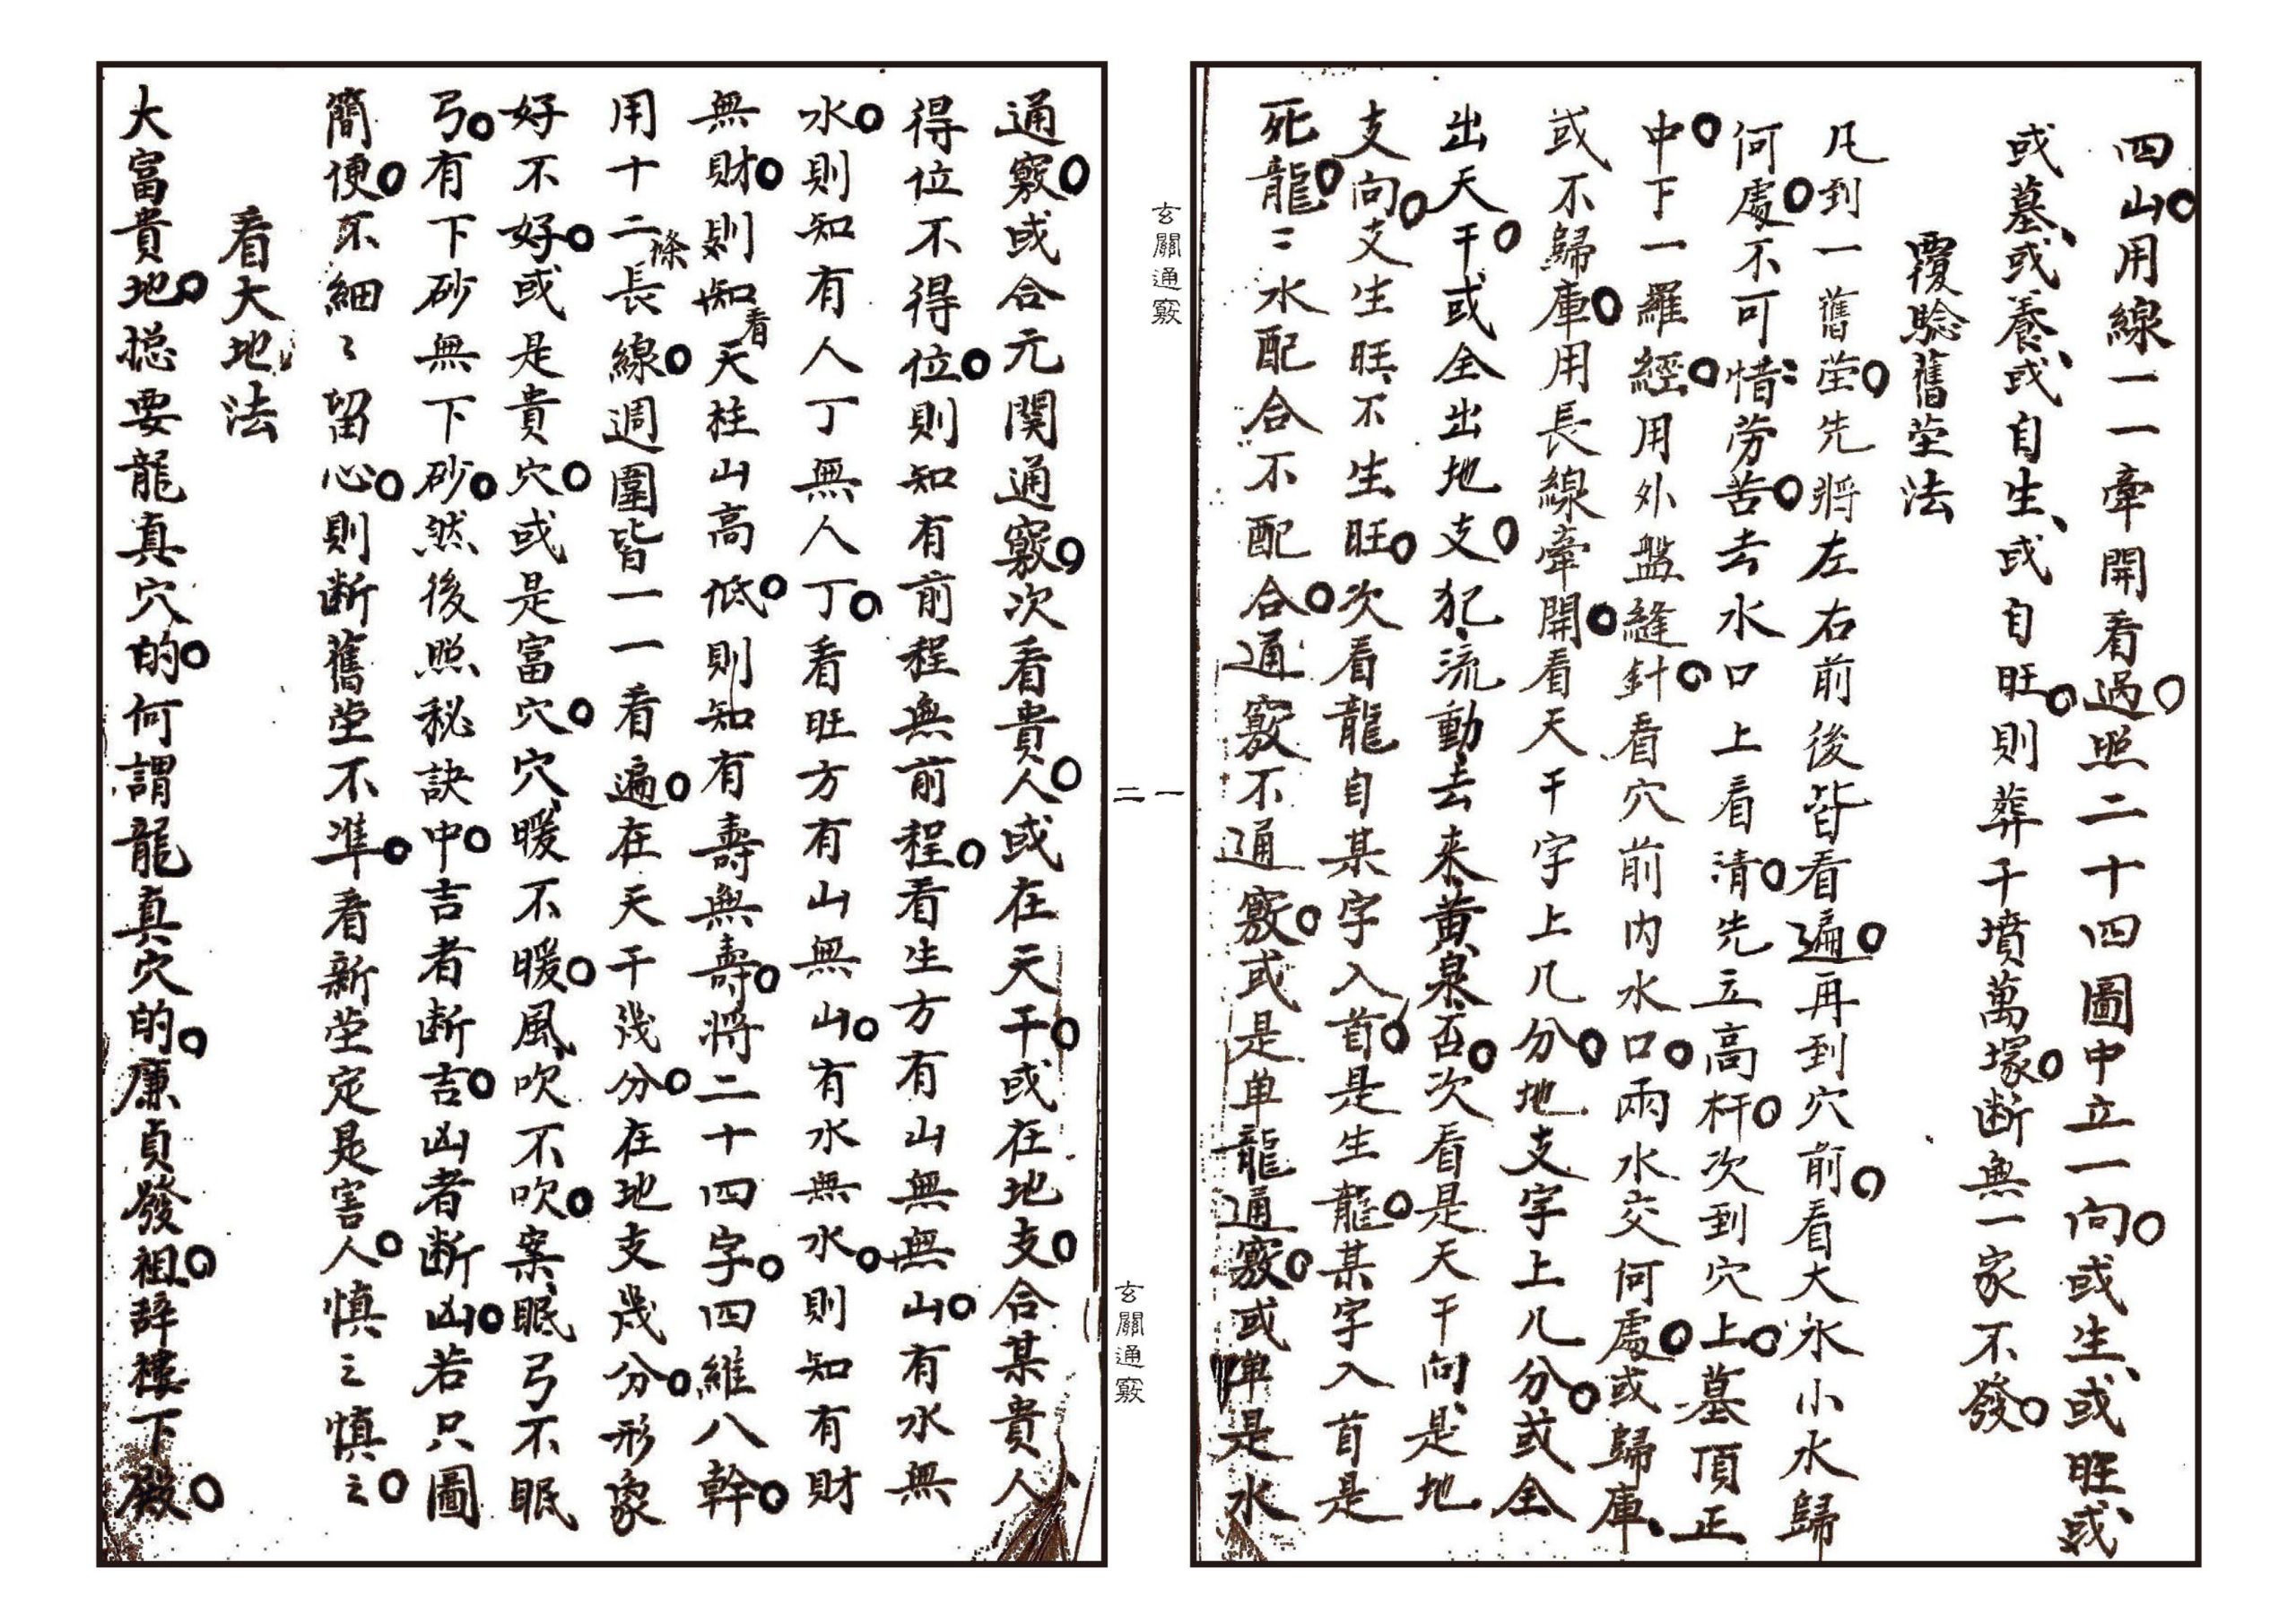 四山。用線一一牽開看過。照二十四圖中立一向。或生、或旺、或
或墓、或養、或自生、或自旺。則葬千墳萬塚。断無一家不發。
覆騐舊塋法
凡到一舊塋。先將左右前後皆看遍。再到穴前。看大水小水歸
何處。不可惜勞苦。去水口上看清。先立高杆。次到穴上。墓頂正
中。下一羅經。用外盤縫針。看穴前內水口。兩水交何處。或歸庫、
或不歸庫。用長線牽開。看天干字上几分。地支字上几分。或全
出天干。或全出地支。犯、流動、去来、黄泉、否。次看是天干向、是地
支向。支生旺、不生旺。次看龍自某字入首。是生龍。某字入首是
死龍。〻水配合不配合。通竅不通竅。或是单龍通竅。或单是水
玄關通竅
一
二
玄關通竅
通竅。或合元関通竅。次看貴人。或在天干。或在地支。合某貴人、
得位不得位。則知有前程無前程。看生方有山無無山。有水無
水。則知有人丁無人丁。看旺方有山無山。有水無水。則知有財
無財。則知看天柱山高低。則知有壽無壽。將二十四字。四維八幹。
用十二條長線。週圍皆一一看遍。在天干幾分。在地支幾分。形象
好不好。或是貴穴。或是富穴。穴、暖不暖。風、吹不吹。案、眠弓不眠
弓。有下砂無下砂。然後照秘訣中。吉者断吉。凶者断凶。若只圖
簡便。不細〻留心。則断舊塋不準。看新塋定是害人。慎之慎之。
看大地法
大富貴地。揔要龍真穴的。何謂龍真穴的。廉貞發祖。辞樓下殿。